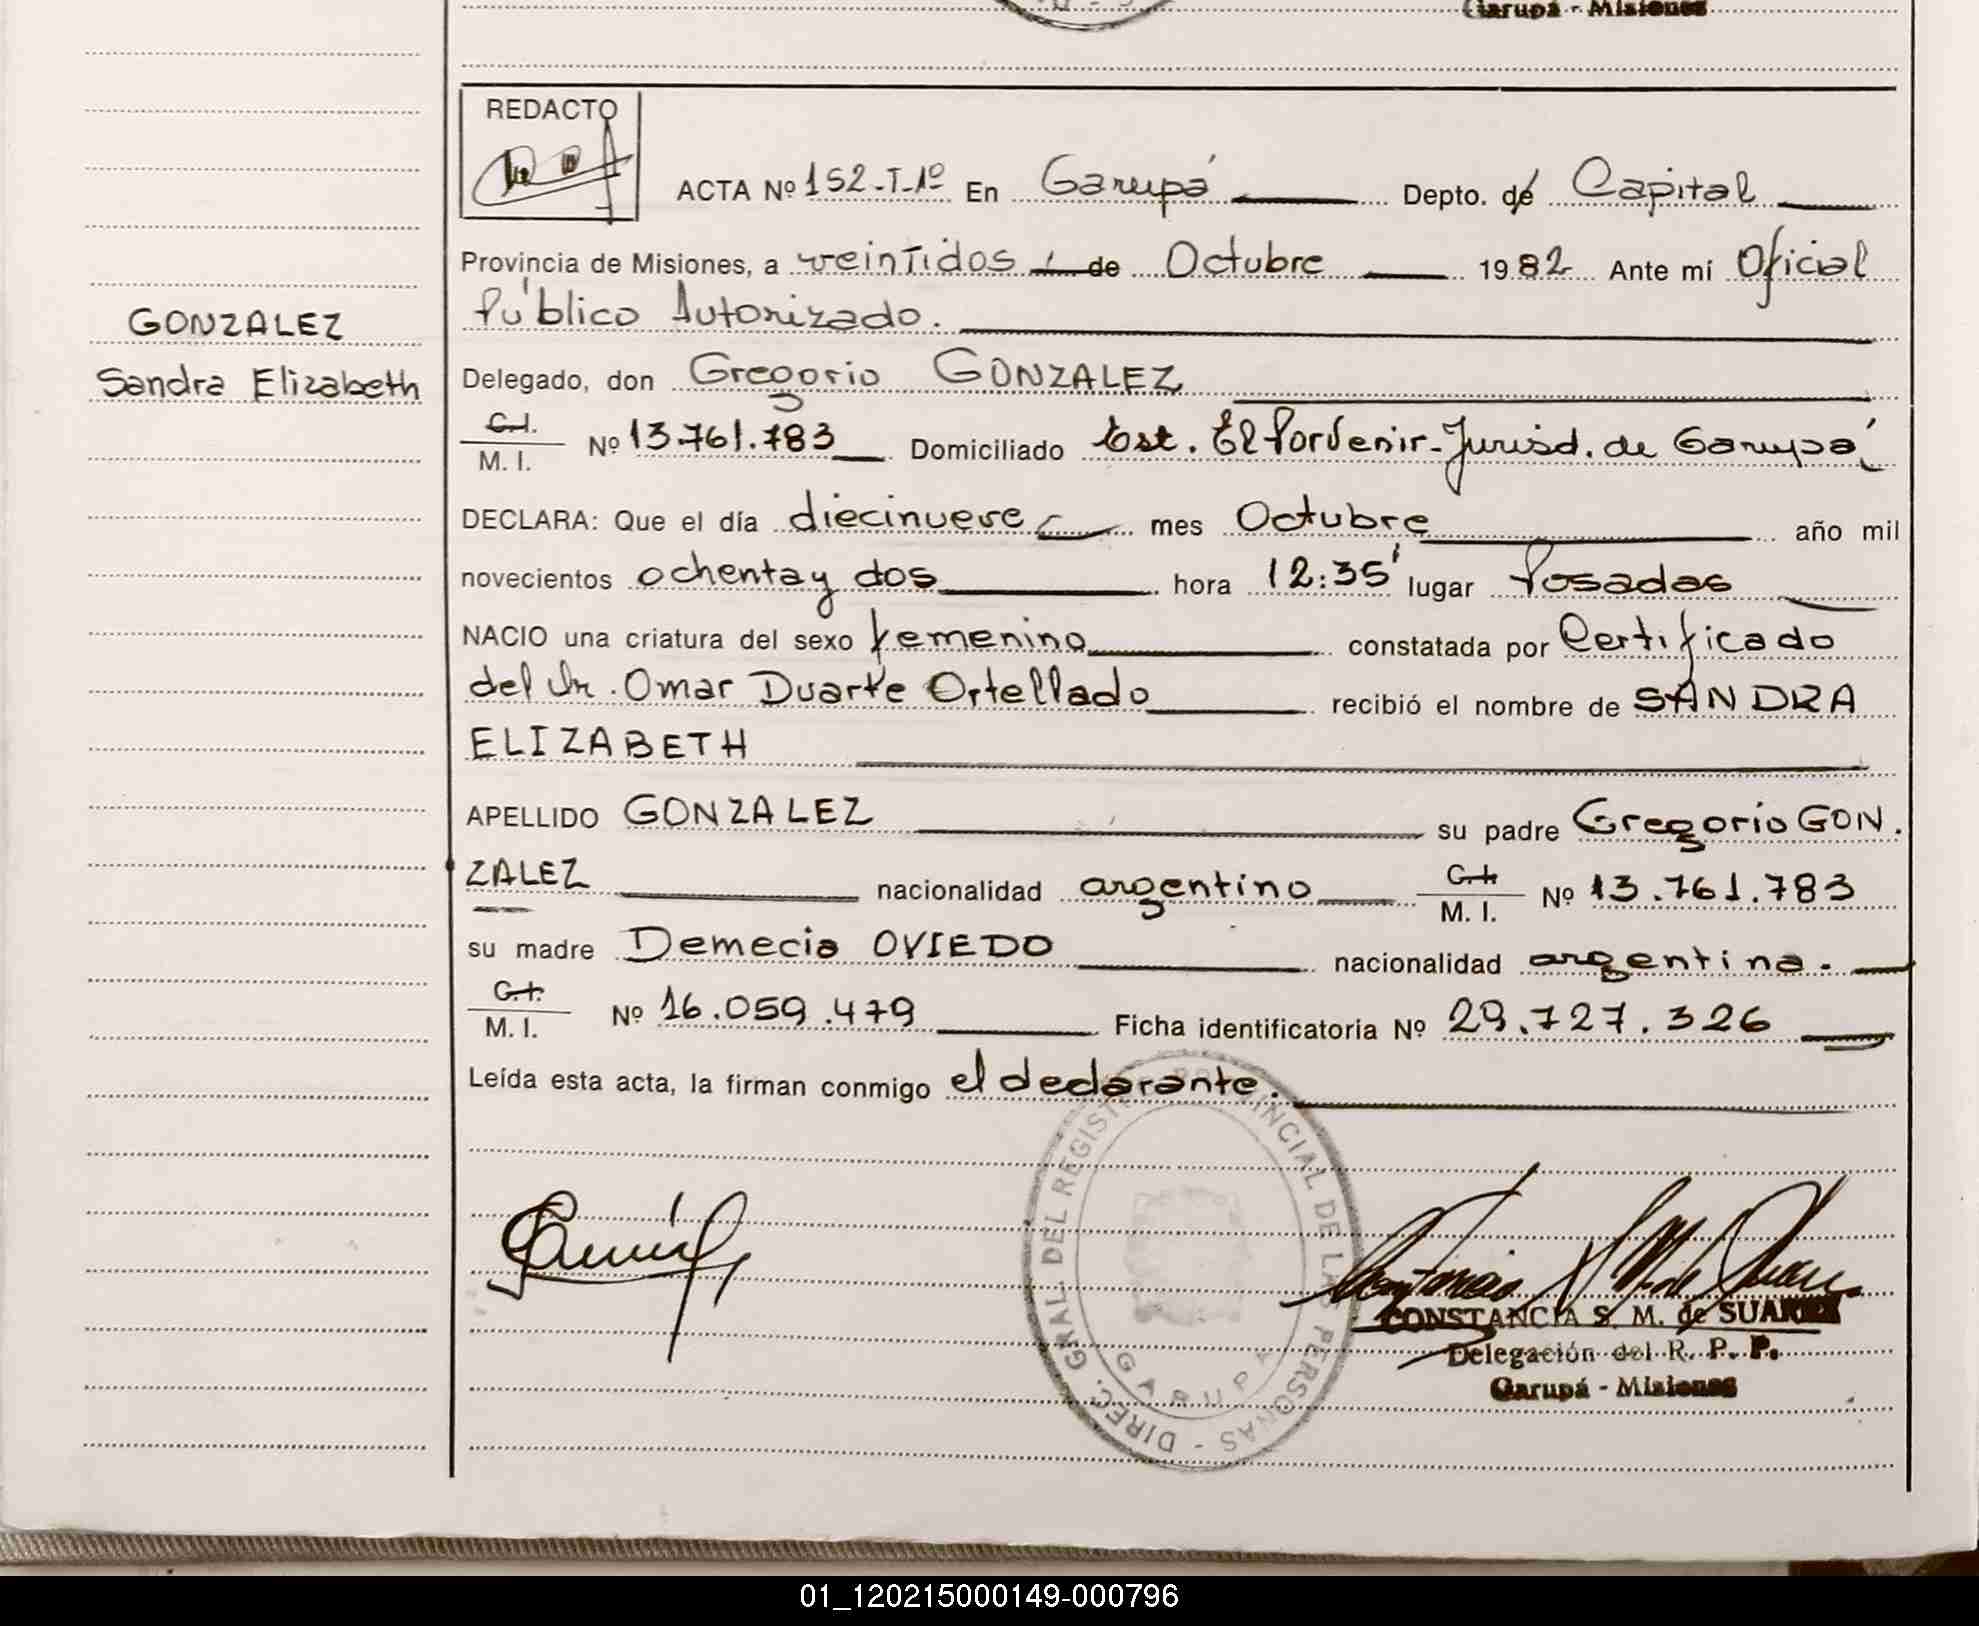 Garupá - Misiones
REDACTO
ACTA Nº 152-T-1º En Garupá Depto. de Capital
Provincia de Misiones, a veintidos de Octubre 1982 Ante mí Oficial
Público Autorizado.
GONZALEZ
Sandra Elizabeth
Delegado, don Gregorio GONZALEZ
C.I.
M. I. Nº 13.761.783 Domiciliado Est. El Porvenir-Jurisd. de Garupá
DECLARA: Que el día diecinueve mes Octubre año mil
novecientos ochenta y dos hora 12:35' lugar Posadas
NACIO una criatura del sexo femenino constatada por Certificado
del Dr. Omar Duarte Ortellado recibió el nombre de SANDRA
ELIZABETH
APELLIDO GONZALEZ su padre Gregorio GON.
ZALEZ nacionalidad argentino C.I. M. I. Nº 13.761.783
su madre Demecia OVIEDO nacionalidad argentina.
C.I.
M. I. Nº 16.059.479 Ficha identificatoria Nº 29.727.326
Leída esta acta, la firman conmigo el declarante.
DIREC. GRAL. DEL REGISTRO PROVINCIAL DE LAS PERSONAS -
GARUPA
CONSTANCIA S. M. de SUAREZ
Delegación del R. P. P.
Garupá - Misiones
01_120215000149-000796